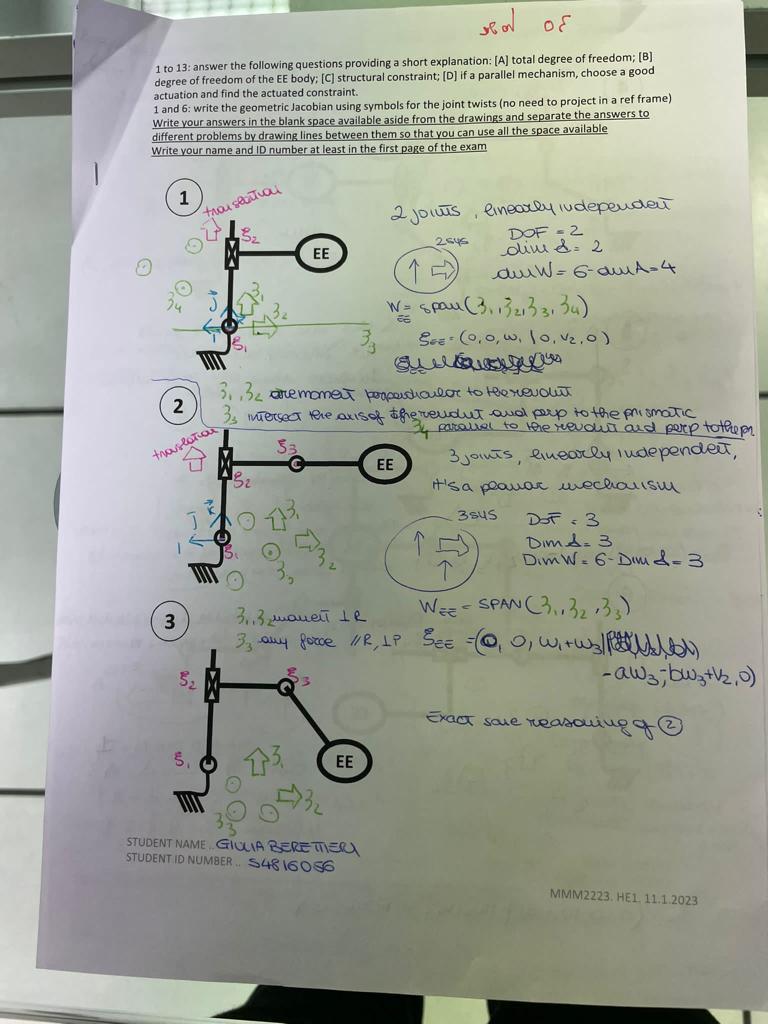 30
1 to 13: answer the following questions providing a short explanation: [A] total degree of freedom; [B]
degree of freedom of the EE body; [C] structural constraint; [D] if a parallel mechanism, choose a good
actuation and find the actuated constraint.
1 and 6: write the geometric Jacobian using symbols for the joint twists (no need to project in a ref frame)
Write your answers in the blank space available aside from the drawings and separate the answers to
different problems by drawing lines between them so that you can use all the space available
Write your name and ID number at least in the first page of the exam
1
translation
ξ2
EE
ξ1
ζ1
ζ2
ζ3
ζ4
2 joints, linearly independent
2sys
DOF = 2
dim S = 2
dim W = 6 - dim S = 4
W EE = span(ζ1, ζ2, ζ3, ζ4)
ξEE = (0, 0, ω1 | 0, v2, 0)
ζ1, ζ2 are moment perpendicular to the revolut
ζ3 intersect the axis of the revolut and perp to the prismatic
ζ4 parallel to the revolut and perp to the pr
2
translation
ξ2
ξ3
EE
ξ1
ζ1
ζ2
ζ3
3 joints, linearly independent,
it's a planar mechanism
3sys
DOF = 3
Dim S = 3
Dim W = 6 - Dim S = 3
WEE = SPAN(ζ1, ζ2, ζ3)
ξEE = (0, 0, ω1+ω3 |
-aω3, -bω3+v2, 0)
ζ1, ζ2 moment ⊥R
ζ3 any force //R, ⊥P
3
ξ2
ξ3
ξ1
EE
ζ1
ζ2
ζ3
Exact same reasoning of 2
STUDENT NAME .. GIULIA BERETTIERI
STUDENT ID NUMBER .. S4816056
MMM2223. HE1. 11.1.2023